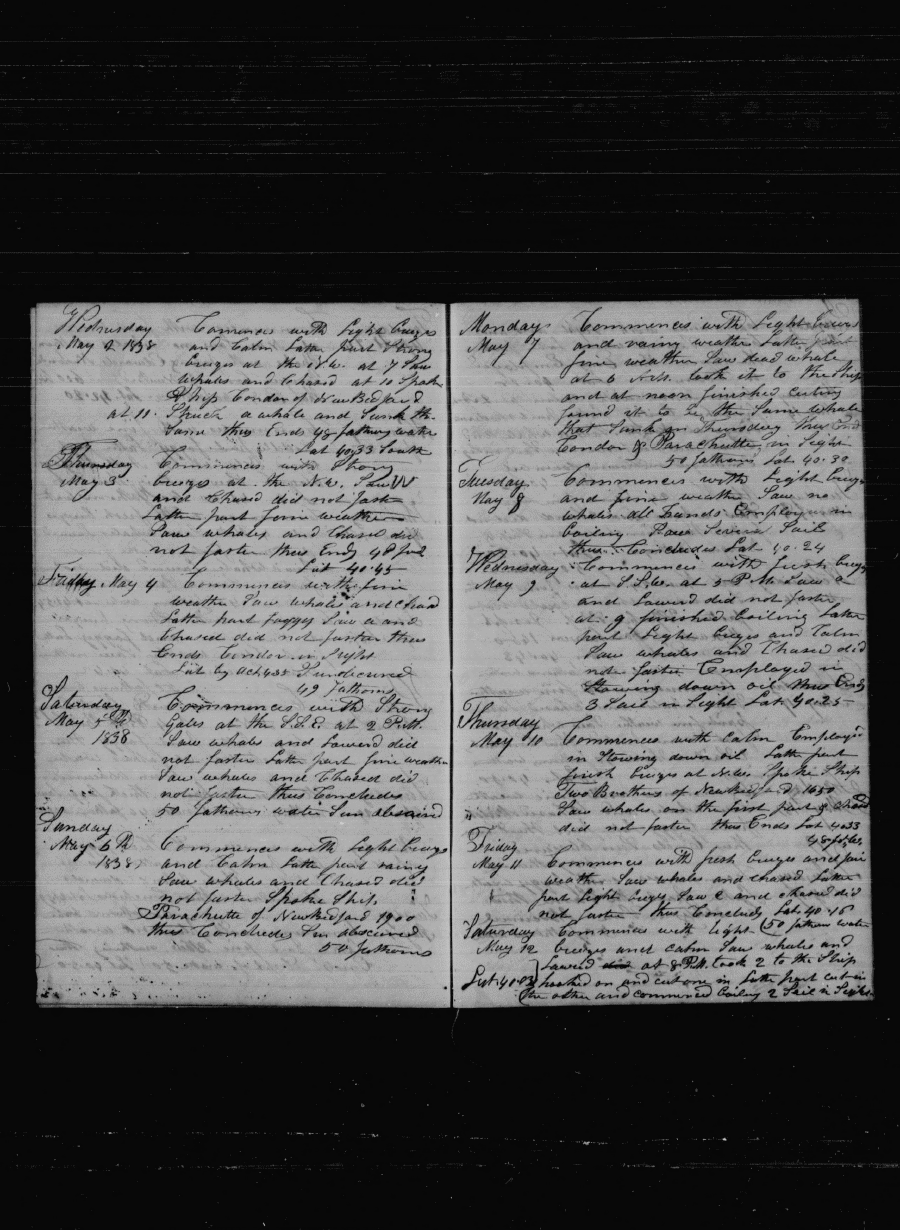 Wednesday Commences with Light breezes
May 2 1838 and Calm Latter part Strong
breezes at the N.W. at 7 Saw
whales and Chased at 10 Spoke
Ship Condor of New Bedford
at 11 Struck a whale and Sunk the
Same thus Ends 48 fathoms water
Lat 40,33 South
Thursday Commences with Strong
May 3 breezes at the N.W. Saw W
and Chased did not fasten
Latter part fine weather
Saw whales and Chased did
not fasten thus Ends 48
Lat 40.45
Friday May 4 Commences with fine
weather Saw whales and chased
Latter part foggy Saw a and
Chased did not fasten thus
Ends Condor in Sight
Lat by
49 fathoms
Saturday Commences with Strong
May 5th Gales at the S.S.E. at 2 P.M.
1838 Saw whales and Lowerd did
not fasten Latter part fine weather
Saw whales and Chased did
not fasten thus Concludes
50 fathoms water Sun obscured
Sunday
May 6th Commences with Light breezes
1838 and Calm Latter part rainy
Saw whales and Chased did
not fasten Spoke Ship
Parachutte of New Bedford 1900
thus Concludes Sun obscured
50 fathoms
Monday Commences with Light breezes
May 7 and rainy weather Latter part
fine weather Saw dead whale
at 6 A.M. took it to the Ship
and at noon finished cutting
found it to be the Same whale
that Sunk on Thursday thus End
Condor & Parachutte in Sight
50 fathoms Lat 40.30
Tuesday Commences with Light breezes
May 8 and fine weather Saw no
whales all hands Employed in
boiling Saw Seven Sail
thus Concludes Lat 40.24
Wednesday Commences with fresh breezes
May 9 at S.S.W. at 5 P.M. Saw a
and Lowerd did not fasten
at 9 finished boiling Latter
part Light breezes and Calm
Saw whales and Chased did
not fasten Employed in
Stowing down oil thus Ends
3 Sail in Sight Lat 40.25
Thursday
May 10 Commences with calm Employd
in Stowing down oil Latt part
fresh breezes at Spoke Ship
Two Brothers of New Bedford 1650
Saw whales on the first part & chased
did not fasten thus Ends Lat 40.33
48
Friday
May 11 Commences with fresh breezes and fair
weather Saw whales and chased Latter
part Light breezes Saw and chased did
not fasten thus Concludes Lat 40.16
50 fathoms water
Saturday Commences with light
May 12 breezes and calm Saw whales and
Lowerd did at 8 P.M. took 2 to the Ship
Lat 40.03 hooked on and cut one in Latter part cut in
the other and commenced boiling 2 Sail in Sight